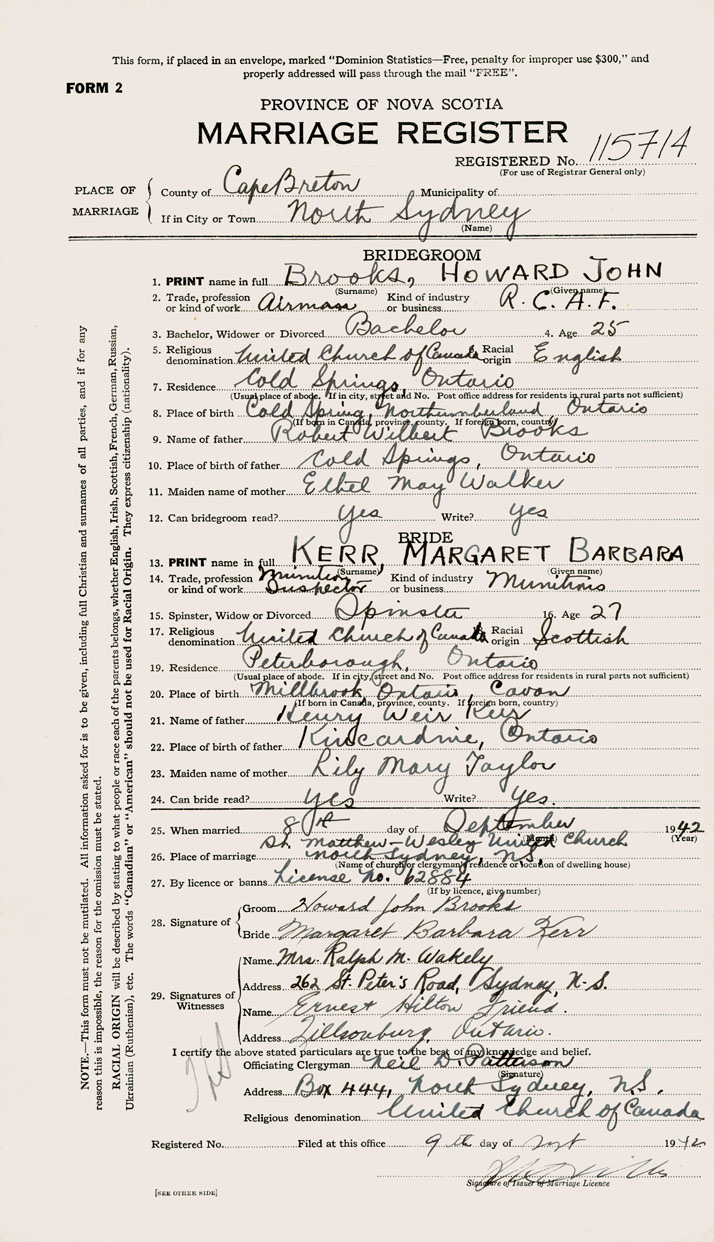 This form, if placed in an envelope, marked "Dominion Statistics—Free, penalty for improper use $300," and
properly addressed will pass through the mail "FREE".
FORM 2
PROVINCE OF NOVA SCOTIA
MARRIAGE REGISTER
REGISTERED No. 115714
(For use of Registrar General only)
PLACE OF MARRIAGE
County of Cape Breton Municipality of
If in City or Town North Sydney
(Name)
BRIDEGROOM
1. PRINT name in full Brooks, HOWARD JOHN
(Surname) (Given name)
2. Trade, profession or kind of work Airman Kind of industry or business R. C. A. F.
3. Bachelor, Widower or Divorced Bachelor 4. Age 25
5. Religious denomination United Church of Canada Racial origin English
7. Residence Cold Springs, Ontario
(Usual place of abode. If in city, street and No. Post office address for residents in rural parts not sufficient)
8. Place of birth Cold Spring, Northumberland Ontario
(If born in Canada, province, county. If foreign born, country)
9. Name of father Robert Wilbert Brooks
10. Place of birth of father Cold Springs, Ontario
11. Maiden name of mother Ethel May Walker
12. Can bridegroom read? yes Write? yes
BRIDE
13. PRINT name in full KERR, MARGARET BARBARA
(Surname) (Given name)
14. Trade, profession or kind of work Munition Inspector Kind of industry or business Munitions
15. Spinster, Widow or Divorced Spinster 16. Age 27
17. Religious denomination United Church of Canada 18. Racial origin Scottish
19. Residence Peterborough, Ontario
(Usual place of abode. If in city, street and No. Post office address for residents in rural parts not sufficient)
20. Place of birth Millbrook, Ontario, Cavan
(If born in Canada, province, county. If foreign born, country)
21. Name of father Henry Weir Kerr
22. Place of birth of father Kincardine, Ontario
23. Maiden name of mother Lily Mary Taylor
24. Can bride read? yes Write? yes.
25. When married 8th day of September 1942
(Month) (Year)
St. Matthew-Wesley United Church
26. Place of marriage North Sydney, N.S.
(Name of church or clergyman's residence or location of dwelling house)
27. By licence or banns License No. 62884
(If by licence, give number)
28. Signature of
Groom Howard John Brooks
Bride Margaret Barbara Kerr
29. Signatures of Witnesses
Name Mrs. Ralph M. Wakely
Address 262 St. Peter's Road, Sydney, N.S.
Name Ernest Hilton Friend.
Address Tillsonburg, Ontario.
I certify the above stated particulars are true to the best of my knowledge and belief.
Officiating Clergyman Neil D. Patterson
(Signature)
Address Box 444, North Sydney, N.S.
Religious denomination United Church of Canada
Registered No. Filed at this office 9th day of 1942
Signature of Issuer of Marriage Licence
[SEE OTHER SIDE]
NOTE.—This form must not be mutilated. All information asked for is to be given, including full Christian and surnames of all parties, and if for any
reason this is impossible, the reason for the omission must be stated.
RACIAL ORIGIN will be described by stating to what people or race each of the parents belongs, whether English, Irish, Scottish, French, German, Russian,
Ukrainian (Ruthenian), etc. The words "Canadian" or "American" should not be used for Racial Origin. They express citizenship (nationality).